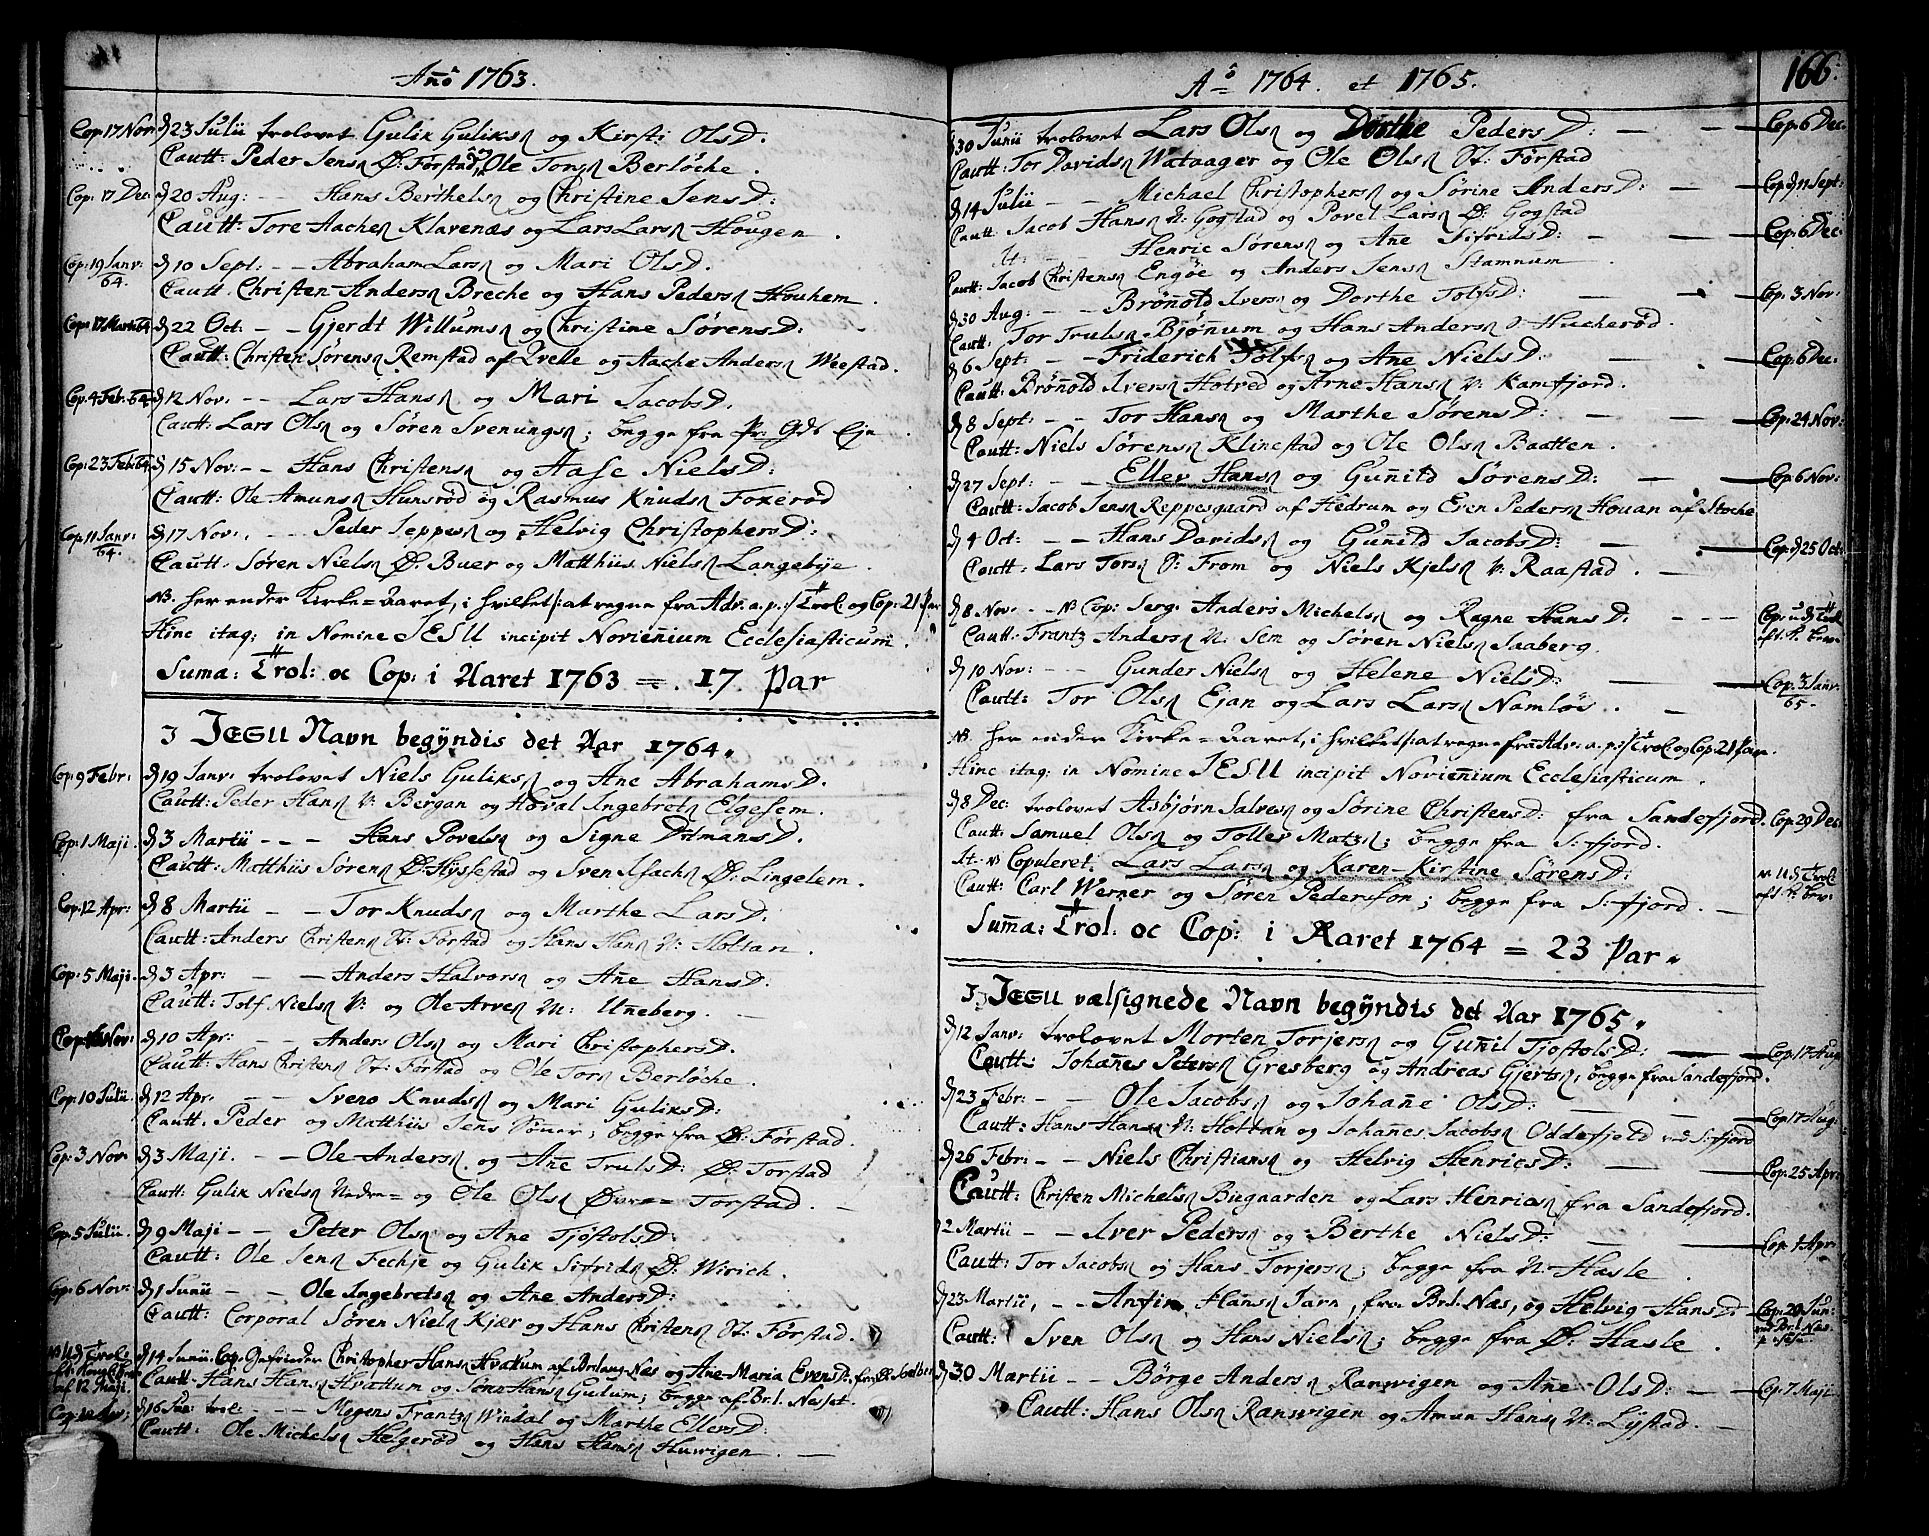 Año 1763.
Cop: 17 Nov: d 23 Julii trolovet Gulik Guliksn og Kirsti OlsD.
Cautt: Peder Jensn Ø: Førstad og Ole Torsn Berløche.
Cop: 17 Dec: d 20 Aug: -- Hans Berthelsn og Christine JensD:
Cautt: Tore Aachesn Klavenæs og Lars Larsn Hougen.
Cop: 19 Janv: 64. d 10 Sept: -- Abraham Larsn og Mari OlsD.
Cautt. Christen Andersn Breche og Hans Pedersn Houhem.
Cop: 17 Martii 64. d 22 Oct: -- Gjerdt Willumsn og Christine SørensD:
Cautt: Christen Sørensn Remstad af Qvelle og Aache Andersn Weestad.
Cop: 4 Feb: 64. d 12 Nov: -- Lars Hansn og Mari JacobsD.
Cautt: Lars Olsn og Søren Svenungsn; begge fra Pr: Gds Eje
Cop: 23 Feb: 64. d 15 Nov: -- Hans Christensn og Aase NielsD:
Cautt: Ole Amunsn Hunsrød og Rasmus Knudsn Foxerød
Cop: 11 Janv: 64. d 17 Nov: -- Peder Jeppesn og Helvig ChristophersD:
Cautt: Søren Nielsn Ø: Buer og Matthiis Nielsn Langebÿe.
NB. her ender Kirke=Aaret, i hvilket /: at regne fra Adv: a. p: / Trol: og Cop: 21 Par
Hinc itaq; in Nomine JESU incipit Novieñium Ecclesiasticum.
Suma: Trol: oc Cop: i Aaret 1763 =. 17 Par
I JESU Navn begÿndis det Aar 1764.
Cop: 9 Febr: d 19 Janv: trolovet Niels Guliksn og Ane AbrahamsD.
Cautt: Peder Hansn V: Bergan og Hoval Ingebretsn Elgesem.
Cop: 1 Maji d 3 Martii -- Hans Povelsn og Signe DitmansD.
Cautt: Matthiis Sørensn Ø: Hÿssestad og Sven Isachsn Ø: Lingelem.
Cop: 12 Apr: d 8 Martii -- Tor Knudsn og Marthe LarsD.
Cautt: Anders Christensn N: Førstad og Hans Hansn N: Holtan.
Cop: 5 Maji. d 3 Apr: -- Anders Halvorsn og Añe HansD:
Cautt: Tolf Nielsn V: og Ole Arvesn N: Uñeberg.
Nov: d 10 Apr: -- Anders Olsn og Mari ChristophersD.
Cautt: Hans Christensn N: Førstad og Ole Torsn Berløche.
Cop: 10 Julii d 12 Apr: -- Sveno Knudsn og Mari GuliksD:
Cautt: Peder og Matthiis Jens Sønner; begge fra Ø: Førstad.
Cop: 3 Nov: d 3 Maji. -- Ole Andersn og Añe TrulsD: Ø: Torstad
Cautt: Gulik Nielsn Nedre= og Ole Olsn Øvre= Torstad.
Cop: 5 Julii. d 9 Maji -- Peter Olsn og Ane TjøstolsD:
Cautt: Ole Jensn Fechje og Gulik Sifridsn Ø: Wirich.
Cop: 6 Nov: d 1 Junii -- Ole Ingebretsn og Ane AndersD:
Cautt: Corporal Søren Nielsn Kjær og Hans Christensn N: Førstad.
af 12 Maji. d 14 Junii: Cop: Christopher Hansn Hvattum af Brlaug-Næs og Ane-Maria EvensD. fra
Cautt: Hans Hansn Hvattum og Hansn Gulum; begge af Br.l. Næsset.
d 16 -- Mogens Frantzn Windal og Marthe EllersD:
Cautt: Ole Michelsn Helgerød og Hans Hansn Huvigen.
Aº 1764. et 1765. 166.
d 30 Junii trolovet Lars Olsn og Dorthe PedersD: -- Cop: 6 Dec:
Cautt: Tor Davidsn Wataager og Ole Olsn N: Førstad
d 14 Julii -- Michael Christophersn og Sørine AndersD: -- Cop: d 11 Sept:
Cautt: Jacob Hansn N: Gogstad og Povel Larsn Ø: Gogstad
It: Henric Sørensn og Ane SifridsD: -- Cop: 6 Dec:
Cautt: Jacob Christensn Engøe og Anders Jensn Stamnum
d 30 Aug: -- Brønold Iversn og Dorthe TolfsD: -- Cop: 3 Nov:
Cautt: Tor Trulsn Bjønnum og Hans Andersn V: Hucherød.
d 6 Sept: -- Friderich Tolfsn og Ane NielsD: -- Cop: 6 Dec:
Cautt: Brønold Iversn Hotved og Arne Hansn V: Kamfjord.
d 8 Sept: -- Tor Hansn og Marthe SørensD: -- Cop: 24 Nov:
Cautt: Niels Sørensn Klinestad og Ole Olsn Baatten.
d 27 Sept: -- Ellev Hansn og Guñild SørensD: -- Cop: 6 Nov:
Cautt: Jacob Jensn Reppesgaard af Hedrum og Even Pedersn Houan af Stoche
d 4 Oct: -- Hans Davidsn og Guñild JacobsD: -- Cop: d 25 Oct:
Cautt: Lars Torsn N: From og Niels Kjelsn V: Raastad.
d 8 Nov: -- NB Cop: Serg: Anders Michelsn og Ragne HansD: ---
Cautt: Frantz Andersn N: Sem og Søren Nielsn Saaberg.
d 10 Nov: -- Gunder Nielsn og Helene NielsD: -- Cop: 3 Janv: 65.
Cautt: Tor Olsn Ejan og Lars Larsn Namløs.
NB. her ender Kirke=Aaret, i hvilket /: at regne fra Adv: a. p: / Trol: og Cop: 21 Par.
Hinc itaq; in Nomine JESU incipit Novieñium Ecclesiasticum.
d 8 Dec: trolovet Asbjørn Salvesn og Sørine ChristensD: fra Sandefjord. Cop: 29 Dec:
Cautt: Samuel Olsn og Tollev Matzn; begge fra S:fjord.
It: NB Copuleret: Lars Larsn og Karen-Kirstine SørensD:
Cautt: Carl Werner og Søren Pedersson; begge fra S:fjord.
Suma: Trol: oc Cop: i Aaret 1764 = 23 Par.
I JESU vælsignede Navn begÿndis det Aar 1765.
d 12 Janv: trolovet Morten Torjersn og Guñil TjøstolsD: -- Cop: 17 Aug:
Cautt: Johañes Petersn Gresberg og Andreas Gjertsn; begge fra Sandefjord.
d 23 Febr: -- Ole Jacobsn og Johañe OlsD: -- Cop: 17 Aug:
Cautt: Hans Hansn N: Holtan og Johañes Jacobsn Oddefjeld ved S:fjord
d 26 Febr: -- Niels Christiansn og Helvig HenricsD: -- Cop: 25 Apr:
Cautt: Christen Michelsn Bugaarden og Lars Henricsn fra Sandefjord.
d 2 Martii -- Iver Pedersn og Berthe NielsD: -- Cop: 1 Apr:
Cautt: Tor Jacobsn og Hans Torjersn; begge fra N: Hasle.
d 23 Martii, -- Anfin Hansn Jarn, fra Br.l. Næs, og Helvig HansD: Cop: 20 Jun:
Cautt: Sven Olsn og Hans Nielsn; begge fra Ø: Hasle.
d 30 Martii -- Børge Andersn Ranvigen og Añe OlsD: -- Cop: 7 Maji.
Cautt: Hans Olsn Ranvigen og Amun Hansn N: Lÿstad.